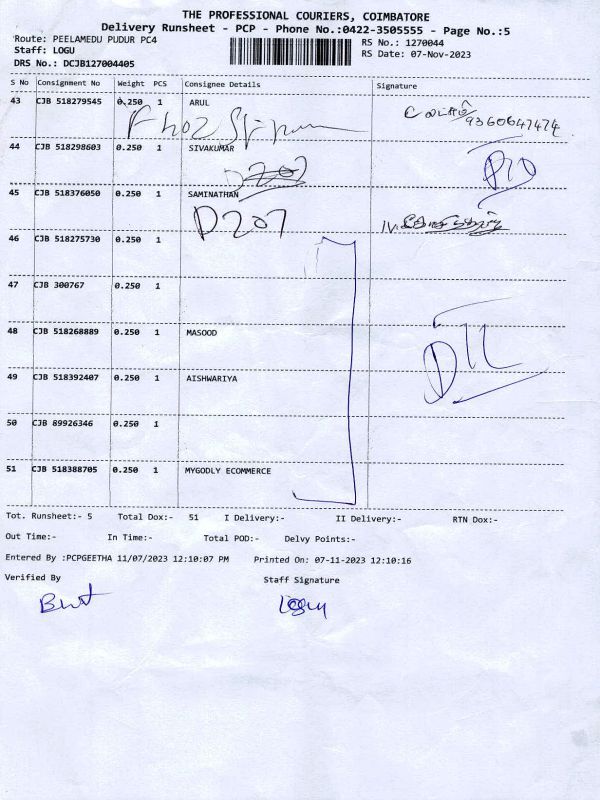 THE PROFESSIONAL COURIERS, COIMBATORE
Delivery Runsheet - PCP - Phone No.:0422-3505555 - Page No.:5
Route: PEELAMEDU PUDUR PC4
RS No.: 1270044
Staff: LOGU
RS Date: 07-Nov-2023
DRS No.: DCJB127004405
S No Consignment No Weight PCS Consignee Details Signature
43 CJB 518279545 0.250 1 ARUL
9360647474
44 CJB 518298603 0.250 1 SIVAKUMAR
D207
45 CJB 518376050 0.250 1 SAMINATHAN
D207
46 CJB 518275730 0.250 1
47 CJB 300767 0.250 1
48 CJB 518268889 0.250 1 MASOOD
D11
49 CJB 518392407 0.250 1 AISHWARIYA
50 CJB 89926346 0.250 1
51 CJB 518388705 0.250 1 MYGODLY ECOMMERCE
Tot. Runsheet:- 5 Total Dox:- 51 I Delivery:- II Delivery:- RTN Dox:-
Out Time:- In Time:- Total POD:- Delvy Points:-
Entered By :PCPGEETHA 11/07/2023 12:10:07 PM Printed On: 07-11-2023 12:10:16
Verified By Staff Signature
Logu